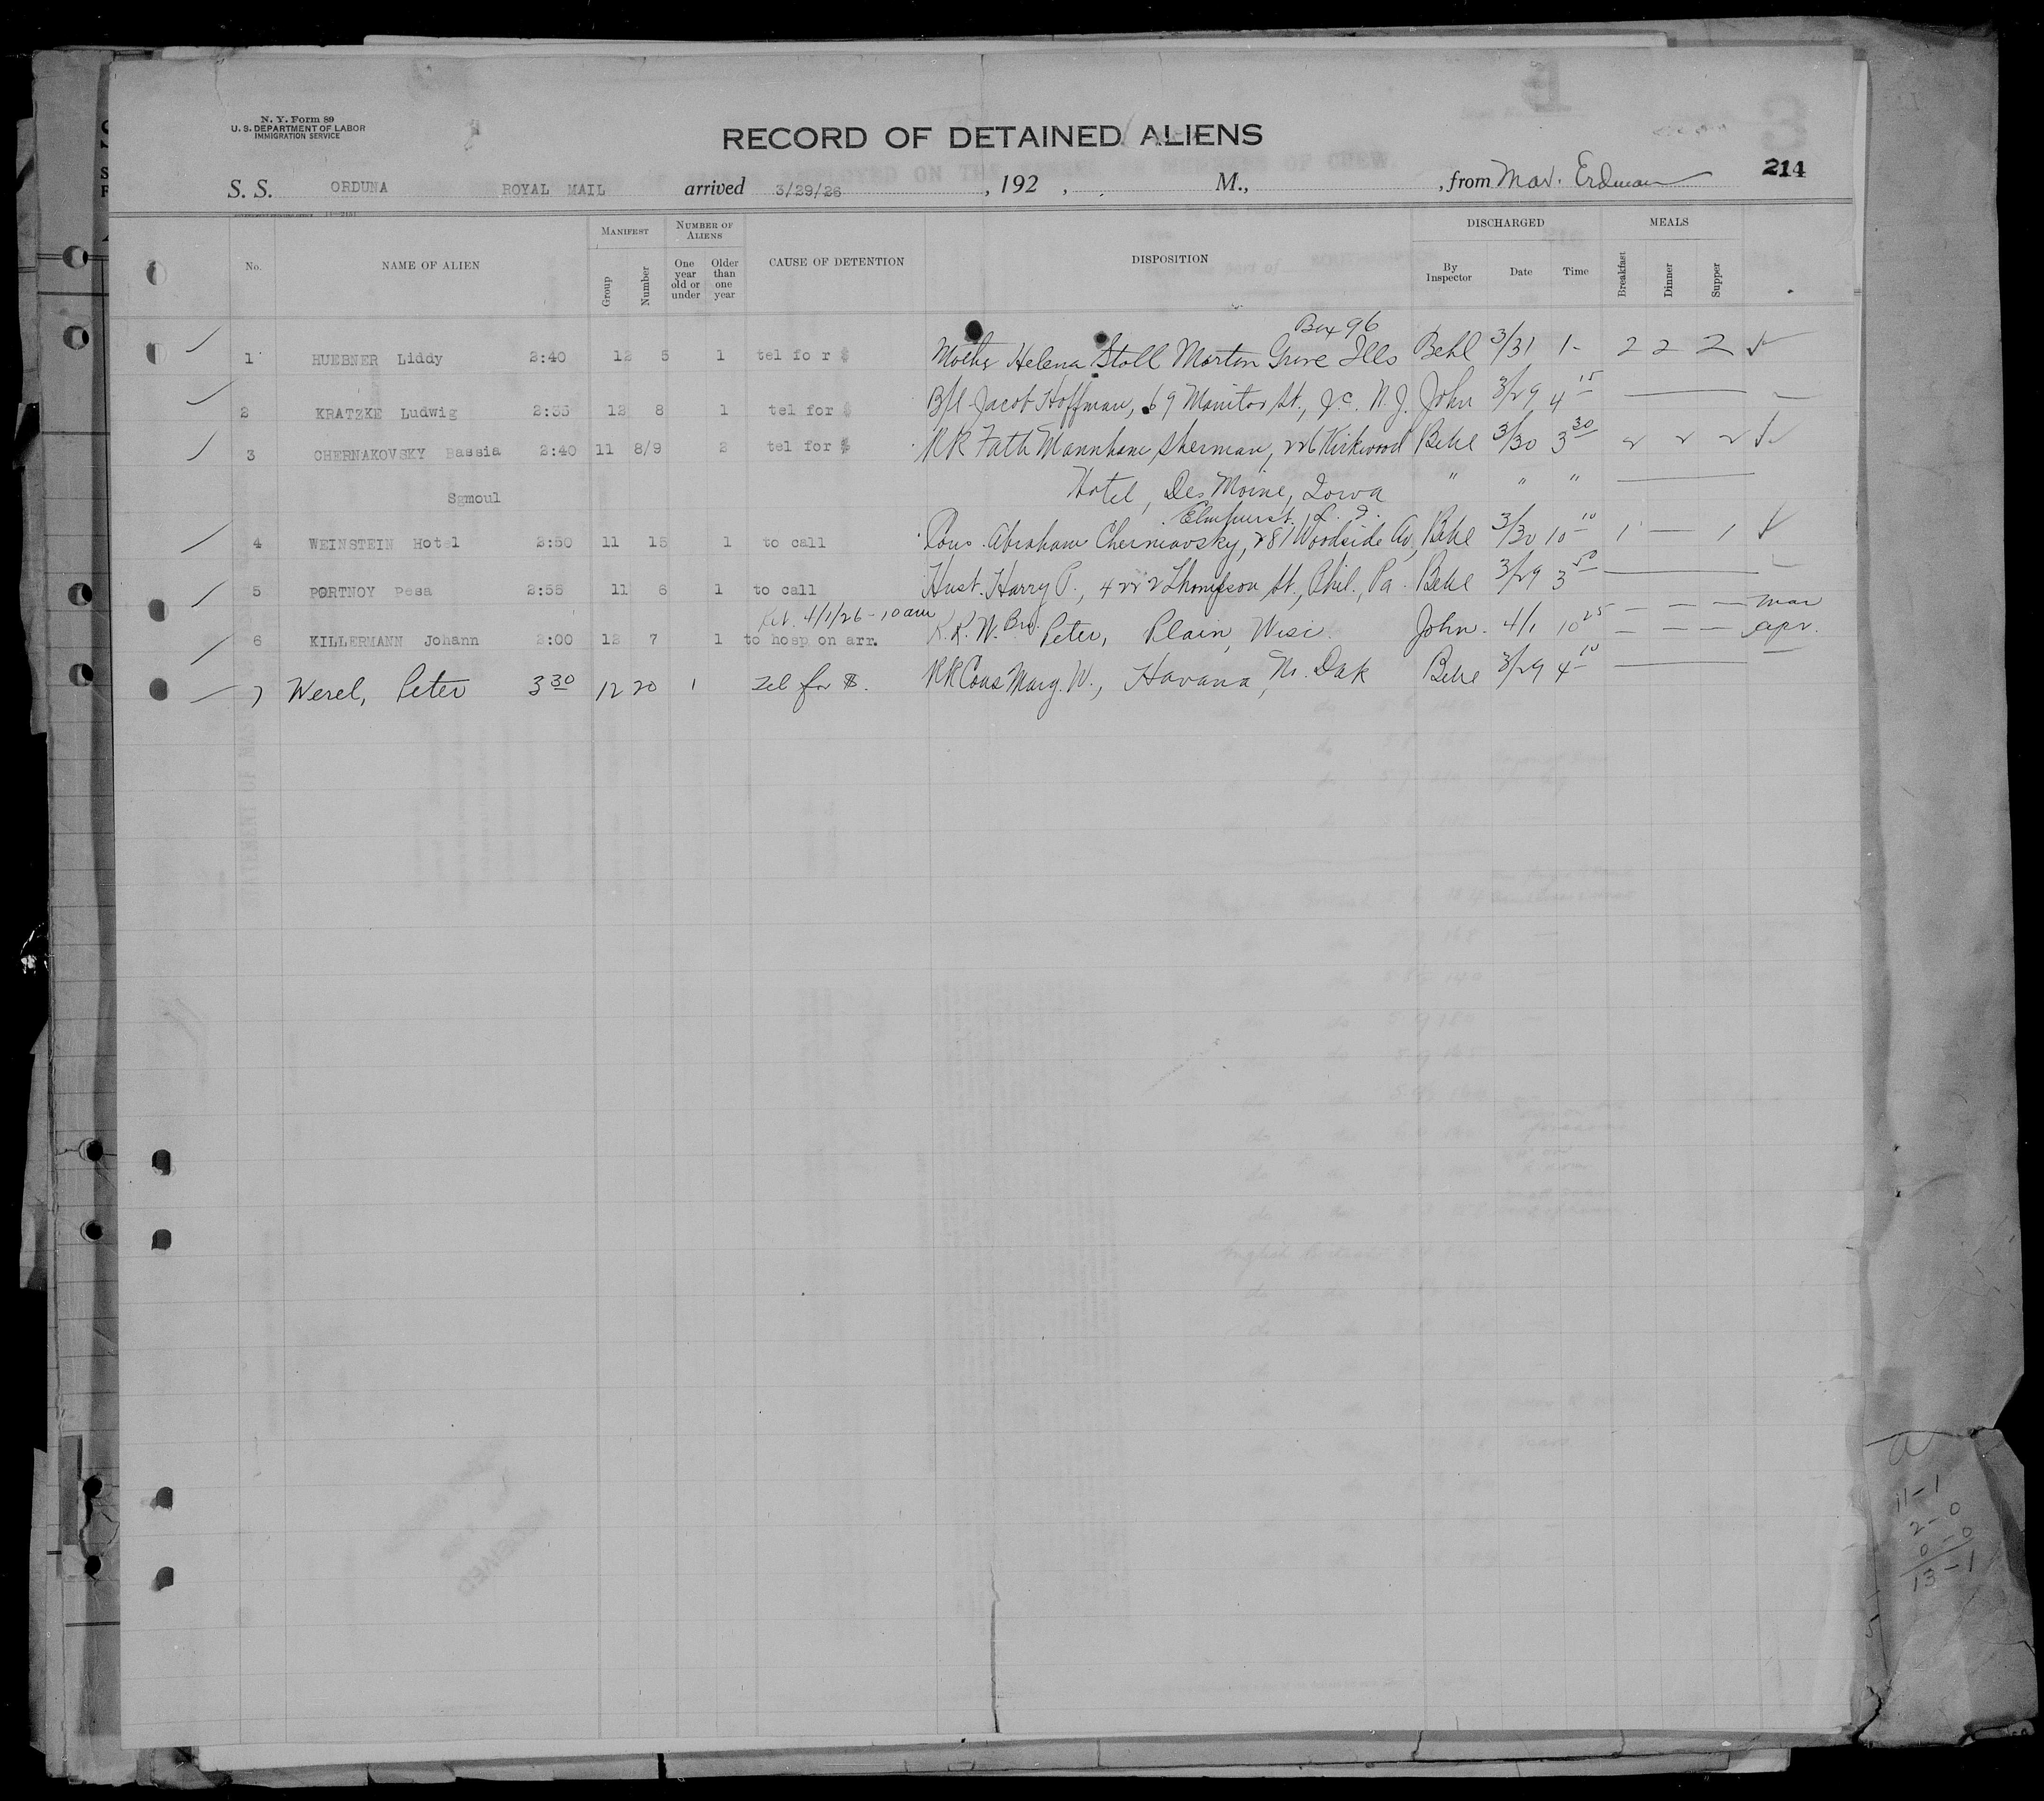 N. Y. Form 89
U. S. DEPARTMENT OF LABOR
IMMIGRATION SERVICE
RECORD OF DETAINED ALIENS
214
S. S. ORDUNA ROYAL MAIL arrived 3/29/26, 192 , M., , from Mar. Erdman
No. NAME OF ALIEN MANIFEST Group Number NUMBER OF ALIENS One year old or under Older than one year CAUSE OF DETENTION DISPOSITION DISCHARGED By Inspector Date Time MEALS Breakfast Dinner Supper
Box 96
1 HUEBNER Liddy 2:40 12 5 1 tel fo r $ Mother Helena Stoll Morton Grove Ills Behl 3/31 1- 2 2 2
2 KRATZKE Ludwig 2:35 12 8 1 tel for $ B/l Jacob Hoffman, 69 Monitor St., J.C. N.J. John 3/29 4 15
3 CHERNAKOVSKY Bassia 2:40 11 8/9 2 tel for $ RR Fath Mannham Sherman, 226 Kirkwood Behl 3/30 3 30 2 2 2
Sgmoul Hotel, Des Moine, Iowa " " "
Elmhurst. L. I.
4 WEINSTEIN Hotel 2:50 11 15 1 to call Cous. Abraham Cherniavsky, 281 Woodside Av, Behl 3/30 10 10 1 — 1
5 PORTNOY Pesa 2:55 11 6 1 to call Hust. Harry P., 4222 Thompson St., Phil., Pa. Behl 3/29 3 50
4/1/26 - 10 am Mar
6 KILLERMANN Johann 2:00 12 7 1 to hosp on arr. R.R.W. Bro. Peter, Plain, Wisc. John. 4/1 10 25 — — — Apr.
7 Werel, Peter 3 30 12 20 1 Tel for $. RR Cous Marg. W., Havana, No. Dak Behl 3/29 4 10
11-1
2-0
0-0
13-1